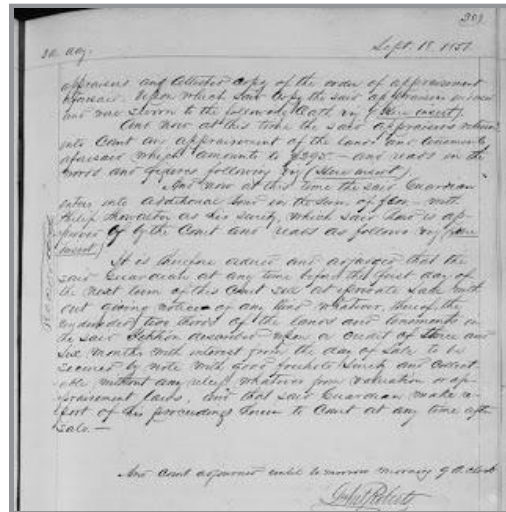 309
2d. day. Sept. 18. 185
appraisers and attached copy of the order of appraisement
aforesaid. Upon which said copy the said appraisers
and were sworn to the following Oath viz (Here insert)
And now at this time the said appraisers return
into Court an appraisement of the lands and tenements
aforesaid which amounts to $295.— and reads in the
words and figures following viz (Here insert)
And now at this time the said Guardian
enters into additional bond in the sum of with
Philip as his surety, which said bond is ap-
proved by the Court and reads as follows viz (here
insert)
It is therefore ordered and adjudged that the
said Guardian at any time before the first day of
the next term of this Court sell at private sale with
out giving notice of any kind whatever, thereof, the
undivided two thirds of the lands and tenements in
the said petition described upon a credit of three and
six months with interest from the day of sale to be
secured by note with good freehold surety and collect-
able without any relief whatever from valuation or ap-
praisement laws, and that said Guardian make re-
port of his proceedings herein to Court at any time after
sale.—
And Court adjourned until tomorrow morning 9 o'clock
Roberts